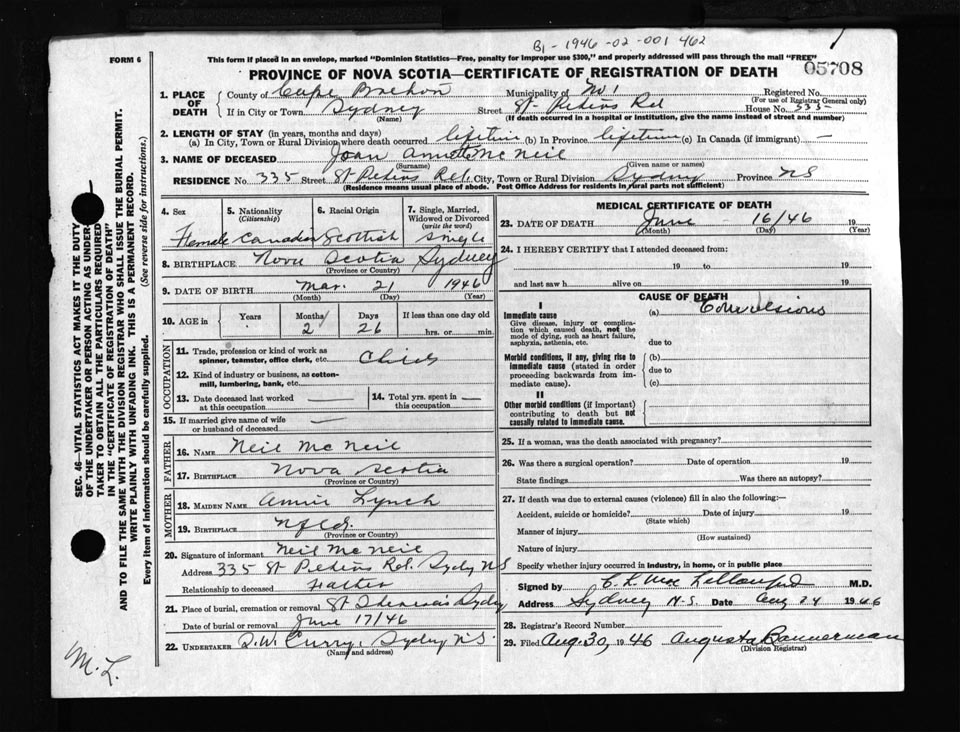 B1-1946-02-001462
FORM 6
This form if placed in an envelope, marked "Dominion Statistics—Free, penalty for improper use $300," and properly addressed will pass through the mail "FREE"
PROVINCE OF NOVA SCOTIA—CERTIFICATE OF REGISTRATION OF DEATH
05708
1. PLACE OF DEATH
County of Cape Breton Municipality of No 1 Registered No.
(For use of Registrar General only)
If in City or Town Sydney Street St Peters Rd House No. 335
(Name) (If death occurred in a hospital or institution, give the name instead of street and number)
2. LENGTH OF STAY (in years, months and days)
(a) In City, Town or Rural Division where death occurred lifetime (b) In Province lifetime (c) In Canada (if immigrant) —
3. NAME OF DECEASED Joan Annette McNeil
(Surname) (Given name or names)
RESIDENCE No. 335 Street St Peters Rd. City, Town or Rural Division Sydney Province NS
(Residence means usual place of abode. Post Office Address for residents in rural parts not sufficient)
4. Sex Female
5. Nationality (Citizenship) Canadian
6. Racial Origin Scottish
7. Single, Married, Widowed or Divorced (write the word) Single
8. BIRTHPLACE Nova Scotia Sydney
(Province or Country)
9. DATE OF BIRTH Mar. 21 1946
(Month) (Day) (Year)
10. AGE in Years Months 2 Days 26 If less than one day old
hrs. or min.
OCCUPATION
11. Trade, profession or kind of work as spinner, teamster, office clerk, etc. Child
12. Kind of industry or business, as cotton-mill, lumbering, bank, etc.
13. Date deceased last worked at this occupation
14. Total yrs. spent in this occupation
15. If married give name of wife or husband of deceased
FATHER
16. NAME Neil McNeil
17. BIRTHPLACE Nova Scotia
(Province or Country)
MOTHER
18. MAIDEN NAME Annie Lynch
19. BIRTHPLACE Nfld.
(Province or Country)
20. Signature of informant Neil McNeil
Address 335 St Peters Rd. Sydney NS
Relationship to deceased Father
21. Place of burial, cremation or removal St Theresa's Sydney
Date of burial or removal June 17/46
22. UNDERTAKER D.W. Curry, Sydney N.S.
(Name and address)
MEDICAL CERTIFICATE OF DEATH
23. DATE OF DEATH June 16/46 19
(Month) (Day) (Year)
24. I HEREBY CERTIFY that I attended deceased from:
19 to 19
and last saw h alive on 19
CAUSE OF DEATH
I
Immediate cause (a) Convulsions
Give disease, injury or complication which caused death, not the mode of dying, such as heart failure, asphyxia, asthenia, etc.
due to
Morbid conditions, if any, giving rise to immediate cause (stated in order proceeding backwards from immediate cause).
(b)
due to
(c)
II
Other morbid conditions (if important) contributing to death but not causally related to immediate cause.
25. If a woman, was the death associated with pregnancy?
26. Was there a surgical operation? Date of operation 19
State findings Was there an autopsy?
27. If death was due to external causes (violence) fill in also the following:—
Accident, suicide or homicide? Date of injury 19
(State which)
Manner of injury
(How sustained)
Nature of injury
Specify whether injury occurred in industry, in home, or in public place
Signed by M.D.
Address Sydney N.S. Date Aug 24 1946
28. Registrar's Record Number
29. Filed Aug. 30, 1946 Augusta Bannerman
(Division Registrar)
SEC. 46—VITAL STATISTICS ACT MAKES IT THE DUTY
OF THE UNDERTAKER OR PERSON ACTING AS UNDER-
TAKER TO OBTAIN ALL THE PARTICULARS REQUIRED
IN THE "CERTIFICATE OF REGISTRATION OF DEATH"
AND TO FILE THE SAME WITH THE DIVISION REGISTRAR WHO SHALL ISSUE THE BURIAL PERMIT.
WRITE PLAINLY WITH UNFADING INK. THIS IS A PERMANENT RECORD.
Every item of information should be carefully supplied. (See reverse side for instructions.)
M.L.